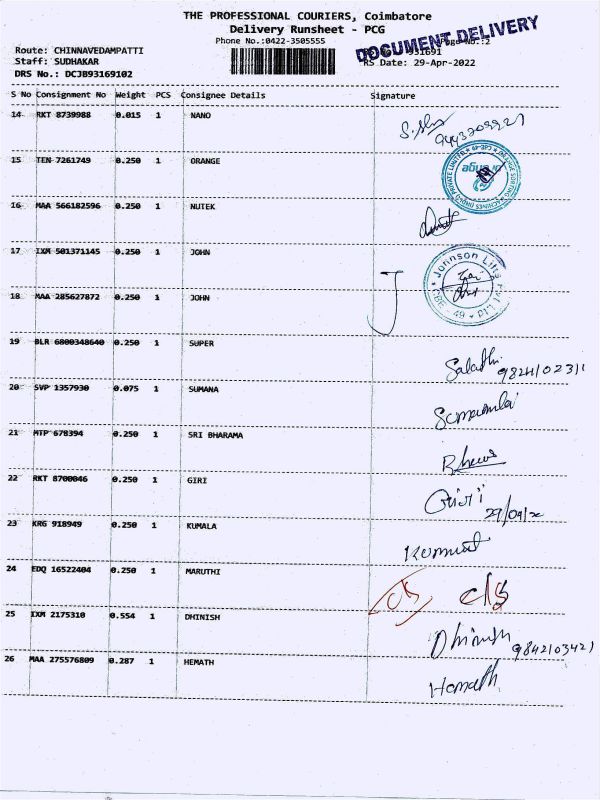 THE PROFESSIONAL COURIERS, Coimbatore
Delivery Runsheet - PCG
Phone No.:0422-3505555
DOCUMENT DELIVERY
Page No.:2
Route: CHINNAVEDAMPATTI
931691
Staff: SUDHAKAR
RS Date: 29-Apr-2022
DRS No.: DCJB93169102
S No Consignment No Weight PCS Consignee Details Signature
14 RKT 8739988 0.015 1 NANO
15 TEN 7261749 0.250 1 ORANGE
16 MAA 566182596 0.250 1 NUTEK
17 IXM 501371145 0.250 1 JOHN
Johnson Lifts
18 MAA 285627872 0.250 1 JOHN
19 BLR 6800348640 0.250 1 SUPER
20 SVP 1357930 0.075 1 SUMANA
21 MTP 678394 0.250 1 SRI BHARAMA
22 RKT 8700046 0.250 1 GIRI
23 KRG 918949 0.250 1 KUMALA
24 EDQ 16522404 0.250 1 MARUTHI
25 IXM 2175310 0.554 1 DHINISH Dhinish 9842103421
26 MAA 275576809 0.287 1 HEMATH Hemath